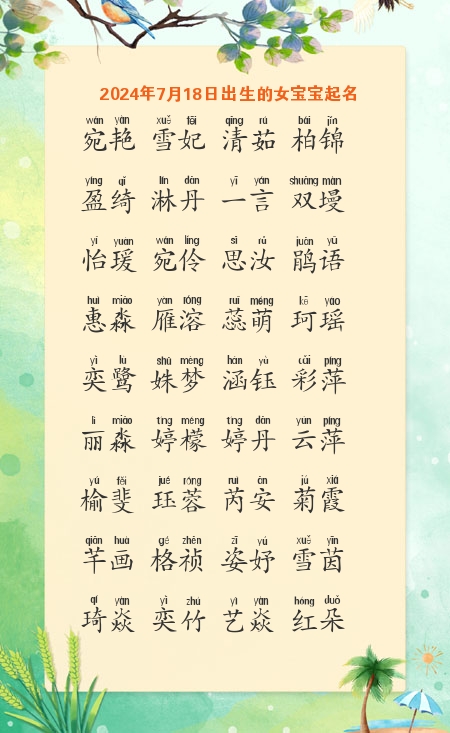 2024年7月18日出生的女宝宝起名
wǎn yàn xuě fēi qīng rú bái jǐn
宛艳 雪妃 清茹 柏锦
yíng qǐ lín dān yī yán shuāng màn
盈绮 淋丹 一言 双墁
yí yuàn wǎn líng sī rǔ juān yǔ
怡瑗 宛伶 思汝 鹃语
huì miǎo yàn róng ruǐ méng kē yáo
惠淼 雁溶 蕊萌 珂瑶
yì lù shū mèng hán yù cǎi píng
奕鹭 姝梦 涵钰 彩萍
lì miǎo tíng méng tíng dān yún píng
丽淼 婷檬 婷丹 云萍
yú fěi jué róng ruì ān jú xiá
榆斐 珏蓉 芮安 菊霞
qiān huà gé zhēn zī yú xuě yīn
芊画 格祯 姿妤 雪茵
qí yàn yì zhú yì yàn hóng duǒ
琦焱 奕竹 艺焱 红朵